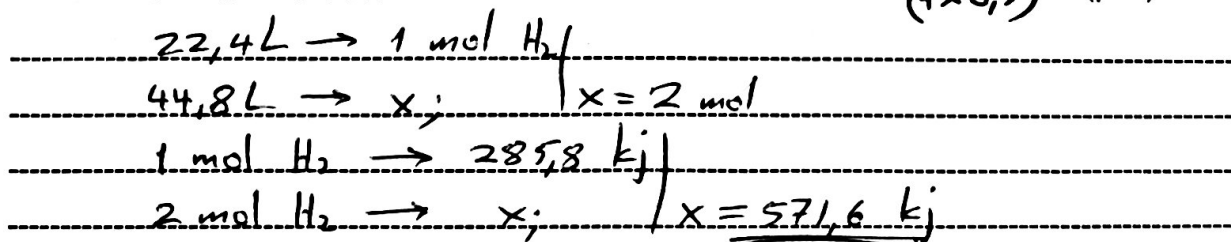 22,4L → 1 mol H₂
44,8L → x; | x = 2 mol
1 mol H₂ → 285,8 kj
2 mol H₂ → x; | x = 571,6 kj